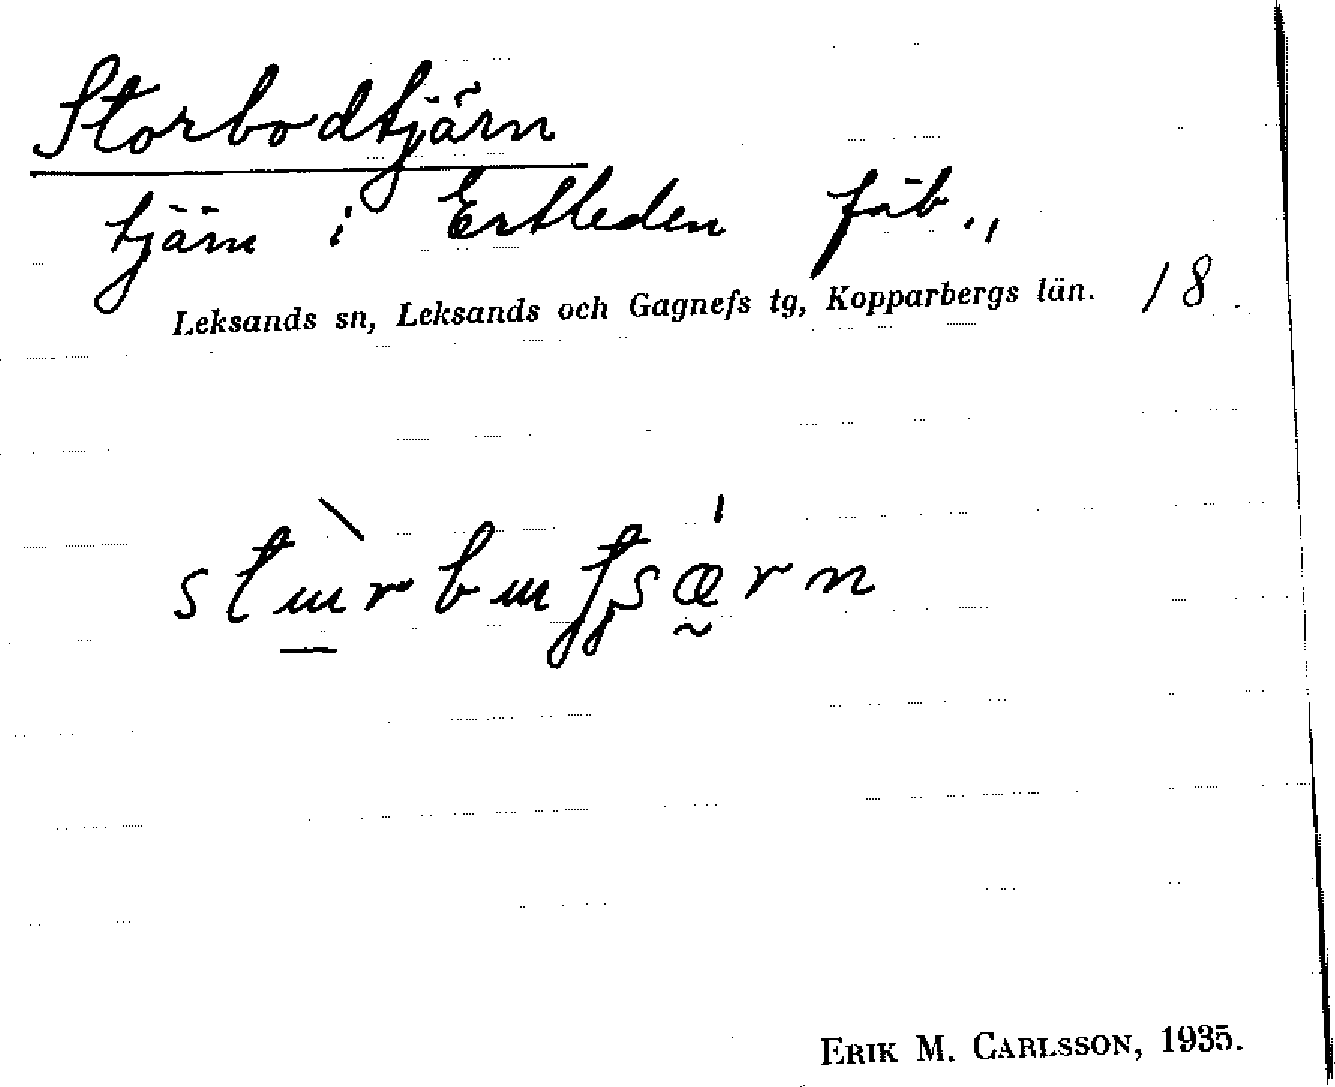 Storbodtjärn
tjärn i Ertleden fäb.,
Leksands sn, Leksands och Gagnefs tg, Kopparbergs län. 18.
ERIK M. CARLSSON, 1935.